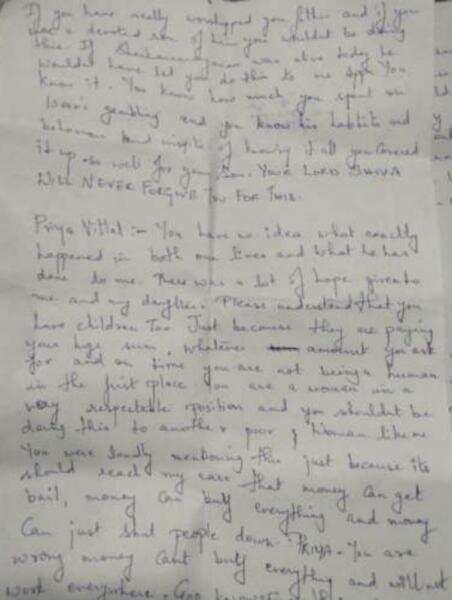 If you have really worshipped your father and if you
was a devoted son of him you wouldn't be doing
this. If was alive today he
wouldn't have let you do this to me. You
know it. You know how much you spent on
gambling and you know his habits and
behaviour and inspite of knowing it all you covered
it up so well for your son. YOUR LORD SHIVA
WILL NEVER FORGIVE YOU FOR THIS.
Priya Vittal :- You have no idea what exactly
happened in both our lives and what he has
done to me. There was a lot of hope given to
me and my daughter. Please understand that you
have children too. Just because they are paying
your huge sum, whatever amount you ask
for and on time you are not being a human
in the first place. You are a woman in a
very respectable position and you shouldn't be
doing this to another poor woman like me
You were loudly mentioning this just because its
should reach my ears that money can get
bail, money can buy everything and money
can just shut people down. PRIYA - You are
wrong money cant buy everything and will not
work everywhere. God knows